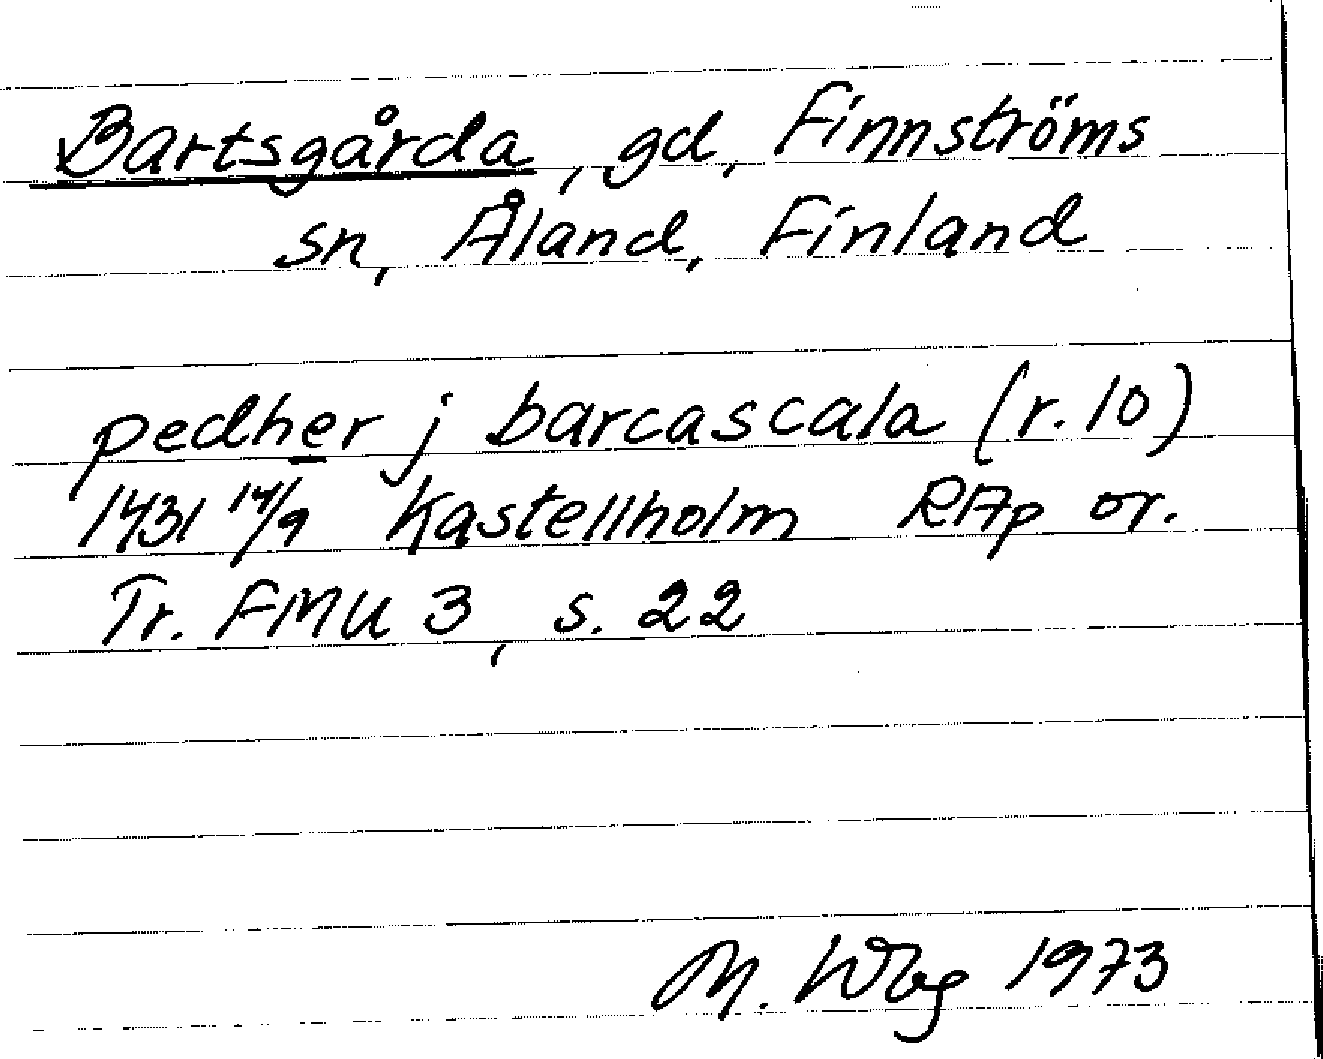 Bartsgårda, gd, Finnströms
sn, Åland, Finland
pedher j barcascala (r. 10)
1431 14/9 Kastellholm RAp or.
Tr. FMU 3, s. 22
M. Wbg 1973